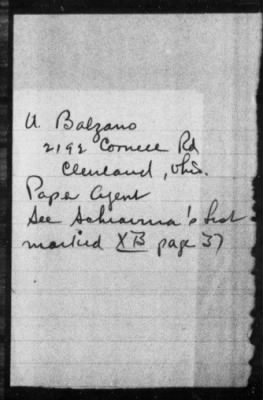 U. Balzano
2192 Cornell Rd
Cleveland, Ohio.
Paper Agent
See Schiavina's list
marked XB page 37